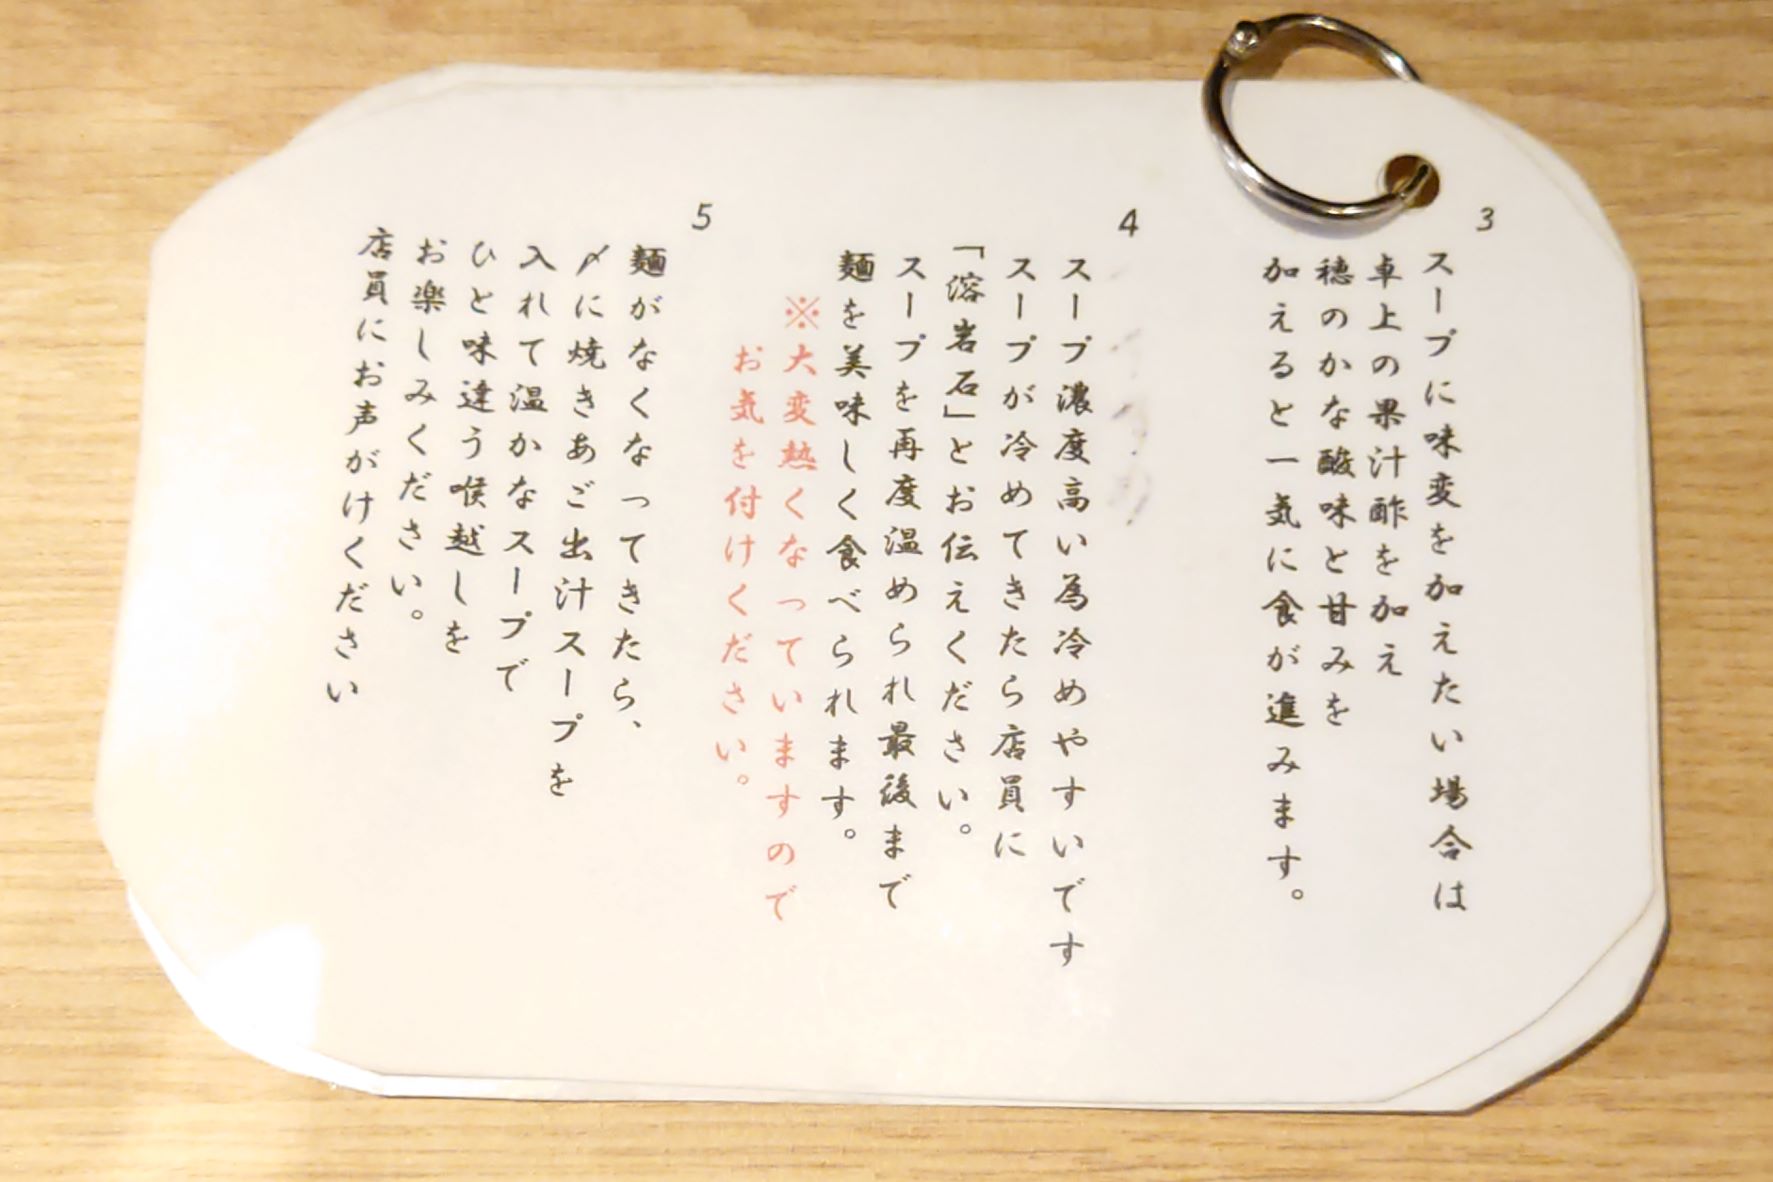 3
スープに味変を加えたい場合は
卓上の果汁酢を加え
穂のかな酸味と甘みを
加えると一気に食が進みます。
4
スープ濃度高い為冷めやすいです
スープが冷めてきたら店員に
「溶岩石」とお伝えください。
スープを再度温められ最後まで
麺を美味しく食べられます。
※大変熱くなっていますので
お気を付けください。
5
麺がなくなってきたら、
〆に焼きあご出汁スープを
入れて温かなスープで
ひと味違う喉越しを
お楽しみください。
店員にお声がけください